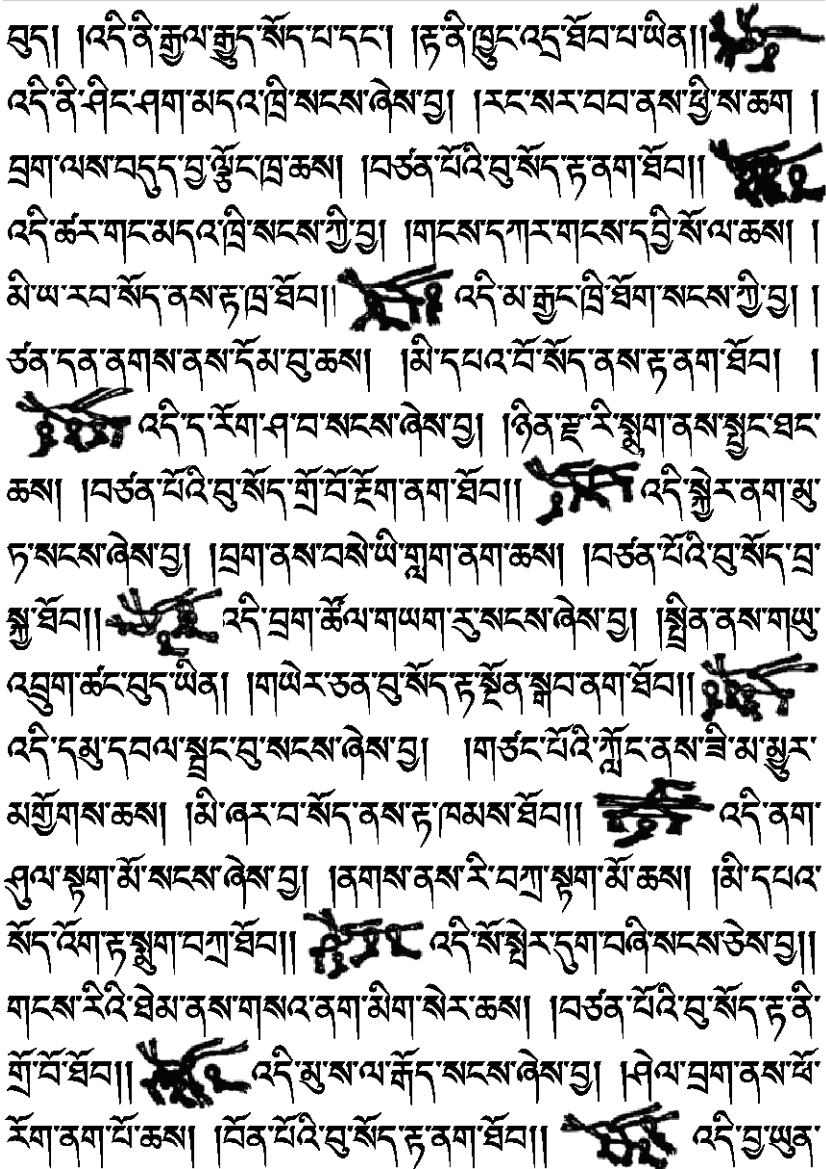 བུད། །འདི་ནི་རྒྱལ་རྒྱུད་སོད་པ་དང་། །རྟ་ནི་ཁྱུང་འདྲ་ཐོབ་པ་ཡིན།།
འདི་ནི་ཤིང་ཤག་མདའ་ཁྲི་སངས་ཞེས་བྱ། །རང་སར་བབ་ནས་ཕྱི་ས་ཆག །
བྲག་ལས་བདུད་བྱ་ལྕོང་ཁྲ་ཆས། །བཙན་པོའི་བུ་སོད་རྟ་ནག་ཐོབ།།
འདི་ཚར་གང་མདའ་ཁྲི་སངས་ཀྱི་བྱ། །གངས་དཀར་གངས་ད་བྱི་སོ་ལ་ཆས། །
མི་ཡ་རབ་སོད་ནས་རྟ་ཁྲ་ཐོབ།། འདི་མ་རྒྱང་ཁྲི་ཐོག་སངས་ཀྱི་བྱ། །
ཙན་དན་ནགས་ནས་དོམ་བུ་ཆས། །མི་དཔའ་བོ་སོད་ནས་རྟ་ནག་ཐོབ། །
འདི་ད་རོག་ཤ་བ་སངས་ཞེས་བྱ། །ཉིན་རྫ་རི་སྨུག་ནས་སྤྱང་ཐང་
ཆས། །བཙན་པོའི་བུ་སོད་གྲོ་བོ་རྔོག་ནག་ཐོབ།། འདི་སྐྱེར་ནག་མུ་
ཏ་སངས་ཞེས་བྱ། །བྲག་ནས་བསེ་ཡི་གླག་ནག་ཆས། །བཙན་པོའི་བུ་སོད་བྲ་
སྐྱ་ཐོབ།། འདི་བྲག་ཚོལ་གཡག་རུ་སངས་ཞེས་བྱ། །སྤྲིན་ནས་གཡུ་
འབྲུག་ཚང་བུད་ཡིན། །གཡེར་ཅན་བུ་སོད་རྟ་སྔོན་སྒབ་ནག་ཐོབ།།
འདི་དམུ་དབལ་སྦྲང་བུ་སངས་ཞེས་བྱ། །གཙང་པོའི་ཀློང་ནས་ཟི་མ་མྱུར་
མགྱོགས་ཆས། །མི་ཞར་བ་སོད་ནས་རྟ་ཁམས་ཐོབ།། འདི་ནག་
ཤུལ་སྟག་མོ་སངས་ཞེས་བྱ། །ནགས་ནས་རི་བཀྲ་སྟག་མོ་ཆས། །མི་དཔའ་
སོད་འོག་རྟ་སྨུག་བཀྲ་ཐོབ།། འདི་སོ་སྤེར་དུག་བཞི་སངས་ཅེས་བྱ།།
གངས་རིའི་ཐེམ་ནས་གསའ་ནག་མིག་སེར་ཆས། །བཙན་པོའི་བུ་སོད་རྟ་ནི་
གྲོ་བོ་ཐོབ།། འདི་མུ་ས་ལ་རྒོད་སངས་ཞེས་བྱ། །ཤེལ་བྲག་ནས་ཕོ་
རོག་ནག་པོ་ཆས། །བོན་པོའི་བུ་སོད་རྟ་ནག་ཐོབ།། འདི་བྱ་ཡུན་